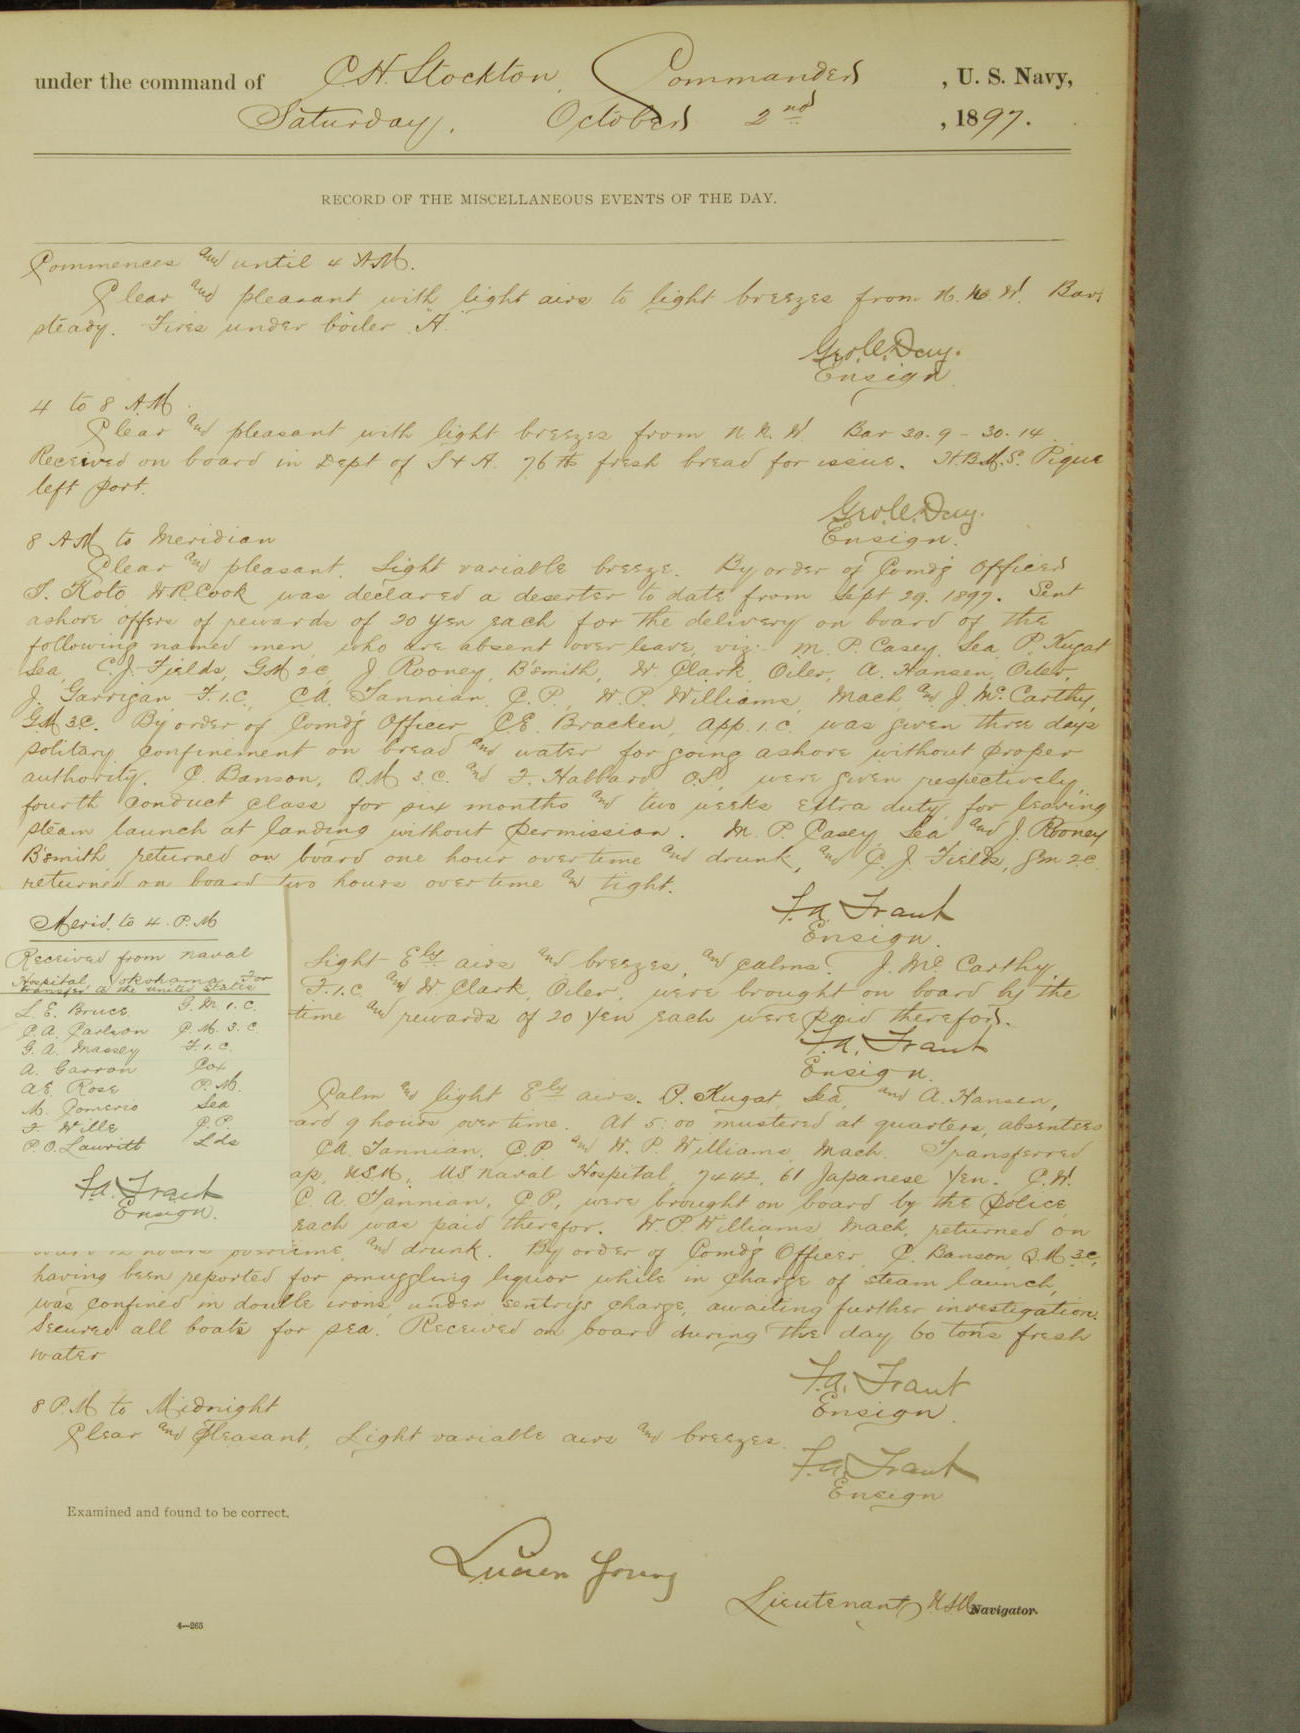 under the command of C. H. Stockton, Commander, U. S. Navy,
Saturday, October 2nd, 1897.
RECORD OF THE MISCELLANEOUS EVENTS OF THE DAY.
Commences and until 4 A.M.
Clear and pleasant with light airs to light breezes from N. N. W. Bar
steady. Fires under boiler A.
Geo. C. Day.
Ensign.
4 to 8 A.M.
Clear and pleasant with light breezes from N. N. W. Bar 30.9 - 30.14.
Received on board in Dept of S & A. 76 lbs fresh bread for issue. H.B.M.S. Pique
left port.
Geo. C. Day.
Ensign.
8 AM to Meridian
Clear and pleasant. Light variable breeze. By order of Comdg Officer
T. Koto, W.R. Cook was declared a deserter to date from Sept 29. 1897. Sent
ashore offers of rewards of 20 yen each for the delivery on board of the
following named men, who are absent over leave, viz: M. P. Casey, Sea, P. Kugat
Sea, C. J. Fields, G.M. 2c, J. Rooney, B'smith, W. Clark, Oiler, A. Hansen, Oiler,
J. Garrigan, F.1.C., C.A. Tannian, C.P., W. P. Williams, Mach, and J. McCarthy,
G.M. 3.C. By order of Comdg Officer C.E. Bracken, App. 1.c. was given three days
solitary confinement on bread and water for going ashore without proper
authority. C. Banson, Q.M. 3.C. and F. Habbard O.S., were given respectively,
fourth conduct class for six months and two weeks extra duty, for leaving
steam launch at landing without permission. M. P. Casey, Sea and J. Rooney
B'smith returned on board one hour overtime and drunk, and C. J. Fields, Gm 2.c.
returned on board two hours overtime and tight.
F. A. Traut
Ensign.
Merid. to 4 P.M
Received from Naval
Hospital, Yokohama For
transfer to the United States
L. E. Bruce G.M. 1.C.
C. A. Carlson C.M. 3.C.
G. A. Massey F.1.C.
A. Garron Cox
A E. Rose P.M.
M. Pomerio Sea
F. Wille C.P.
P. O. Lauritt Lds
F. A. Traut
Ensign.
Light Ely airs and breezes, and calms. J. McCarthy,
F.1.C and W. Clark, Oiler, were brought on board by the
time and rewards of 20 yen each were paid therefor.
F. A. Traut
Ensign.
Calm and light Ely airs. P. Kugat, Sea, and A. Hansen,
ard 9 hours overtime. At 5:00 mustered at quarters, absentees
C.A. Tannian, C.P. and W. P. Williams, Mach. Transferred
ap, U.S.N., U.S Naval Hospital, 7442.61 Japanese Yen. C.W.
C. A. Tannian, C.P., were brought on board by the Police
each was paid therefor. W. P. Williams, Mach, returned on
board 12 hours overtime, and drunk. By order of Comdg Officer, C. Banson, Q.M. 3.C,
having been reported for smuggling liquor while in charge of steam launch,
was confined in double irons, under sentry's charge, awaiting further investigation.
Secured all boats for sea. Received on board during the day 60 tons fresh
water
F. A. Traut
Ensign.
8 P.M to Midnight
Clear and Pleasant, Light variable airs and breezes.
F. A. Traut
Ensign
Examined and found to be correct.
Lucien Young
Lieutenant, U.S.N. Navigator.
4—265